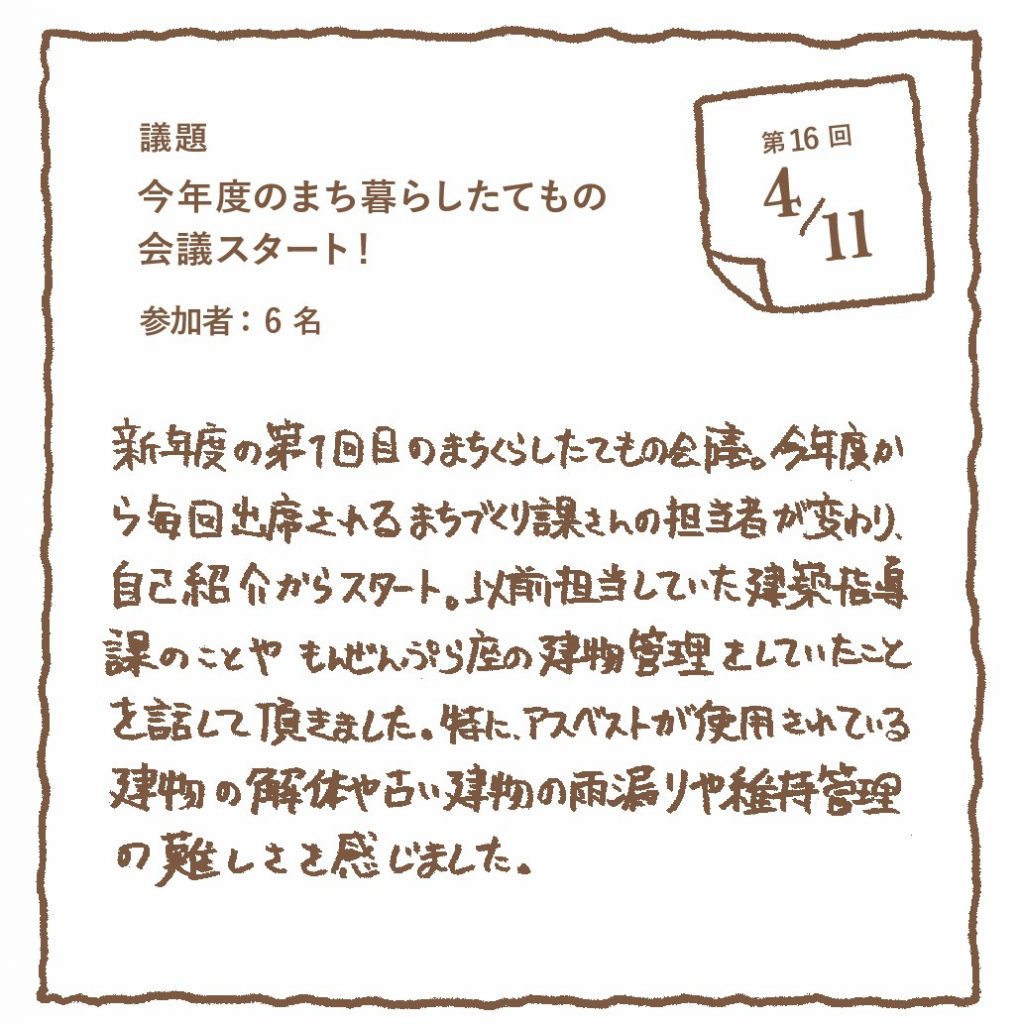 議題
今年度のまち暮らしたてもの
会議スタート！
参加者：6 名
第16回
4/11
新年度の第1回目のまちくらしたてもの会議。今年度か
ら毎回出席されるまちづくり課さんの担当者が変わり、
自己紹介からスタート。以前担当していた建築指導
課のことや もんぜんぷら座の建物管理をしていたこと
を話して頂きました。特に、アスベストが使用されている
建物の解体や古い建物の雨漏りや維持管理
の難しさを感じました。